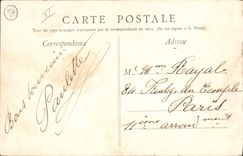 CARTE POSTALE
Tous les pays étrangers n'acceptent pas la correspondance au recto. (Se renseigner à la poste)
Correspondance
Adresse
Bons souvenirs
Paulette
Mme Rayal
Faubg du Temple
Paris
11ième arrondment